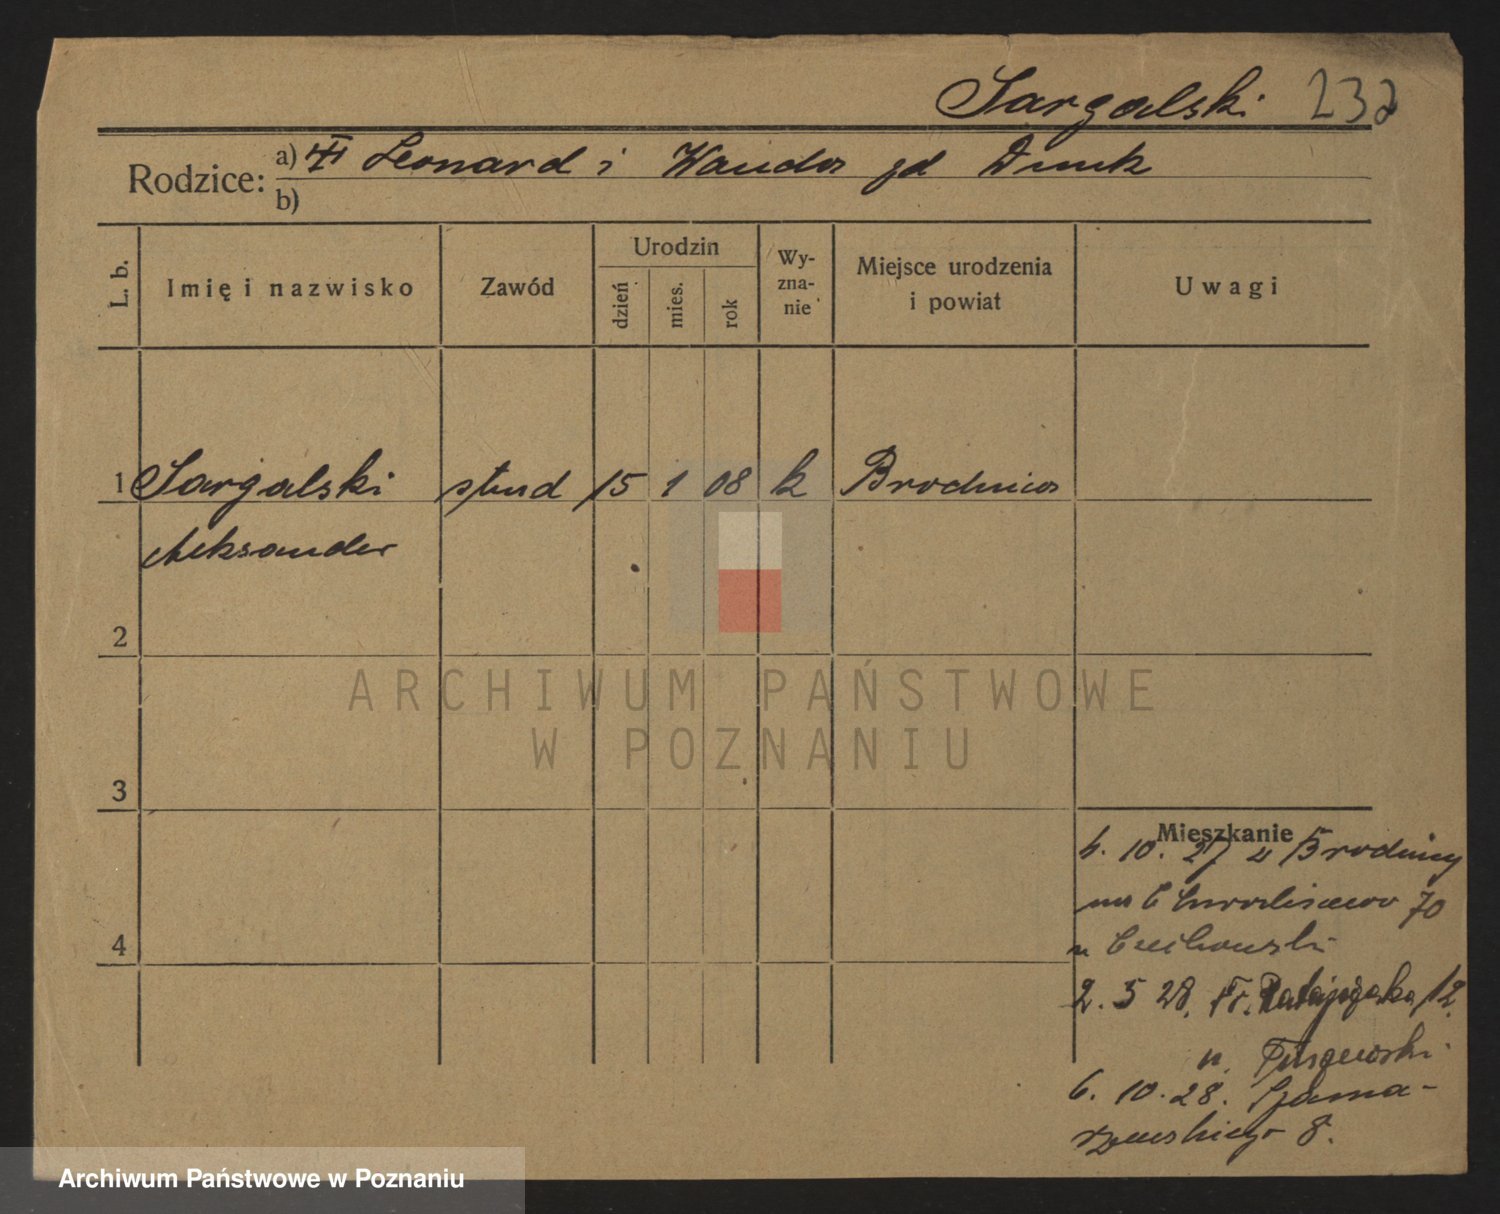 Sargalski 232
Rodzice: a) Leonard i Wanda zd Druck
b)
L. b. Imię i nazwisko Zawód Urodzin dzień mies. rok Wyznanie Miejsce urodzenia i powiat Uwagi
1 Sargalski stud 15 1 08 k Brodnica
Aleksander
2
ARCHIWUM PAŃSTWOWE
W POZNANIU
3
Mieszkanie
6. 10. 27 z Brodnicy
70
n
2. 5 28. Fr. Ratajczaka 12.
n.
6. 10. 28. Szama-
rzewskiego 8.
4
Archiwum Państwowe w Poznaniu